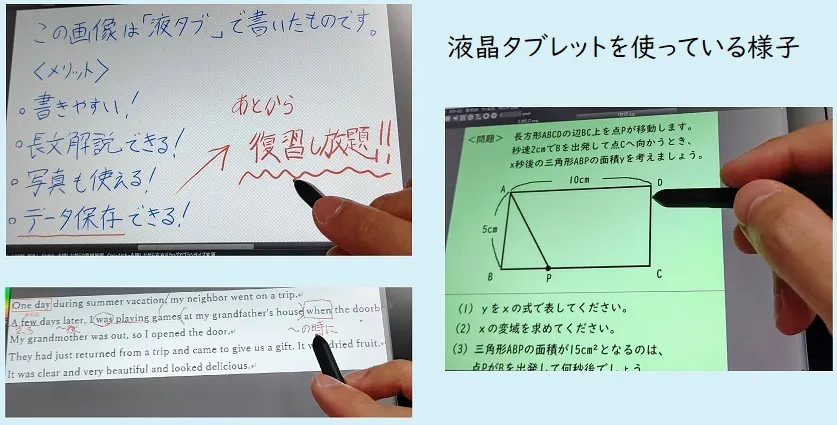 この画像は「液タブ」で書いたものです。
<メリット>
。書きやすい!
。長文解説できる!
。写真も使える!
。データ保存できる!
あとから
復習し放題!!
液晶タブレットを使っている様子
<問題> 長方形ABCDの辺BC上を点Pが移動します。
秒速2cmでBを出発して点Cへ向かうとき、
x秒後の三角形ABPの面積yを考えましょう。
10cm
A
D
5cm
B
P
C
(1) yをxの式で表してください。
(2) xの変域を求めてください。
(3) 三角形ABPの面積が15cm²となるのは、
点PがBを出発して何秒後でしょう
One day during summer vacation, my neighbor went on a trip.
A few days later, I was playing games at my grandfather's house when the doorb
2,3 〜後
〜の時に
My grandmother was out, so I opened the door.
They had just returned from a trip and came to give us a gift. It dried fruit.
It was clear and very beautiful and looked delicious.